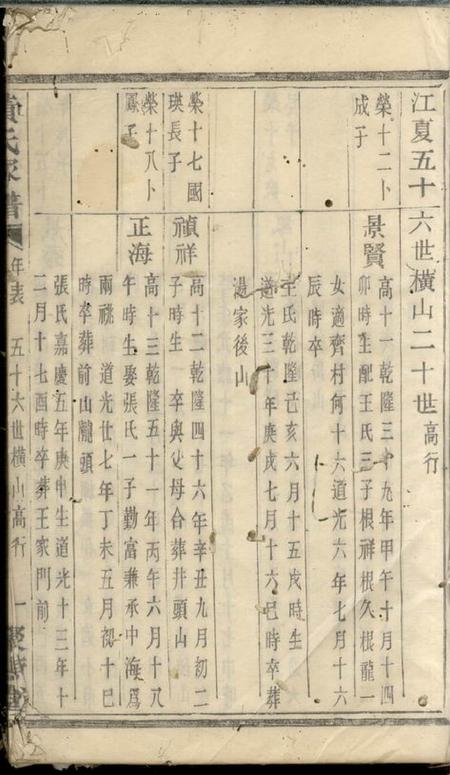 江夏五十六世橫山二十世高行
榮十二卜成子
景賢
高十一乾隆三十九年甲午十月十四
卯時生配王氏三子根祥根久根龍一
女適齊村何十六道光六年七月十六
辰時卒
王氏乾隆己亥六月十五戌時生
道光三十年庚戌七月十六巳時卒葬
湯家後山
榮十七國瑛長子
禎祥
高十二乾隆四十六年辛丑九月初二
子時生 卒與父母合葬井頭山
榮十八卜鳳子
正海
高十三乾隆五十一年丙午六月十八
午時生娶張氏一子勤富兼承中海為
兩祧 道光廿七年丁未五月初十巳
時卒葬前山隴頭
張氏嘉慶五年庚申生道光十三年十
二月十七酉時卒葬王家門前
黃氏家譜 年表 五十六世橫山高行 一 聚